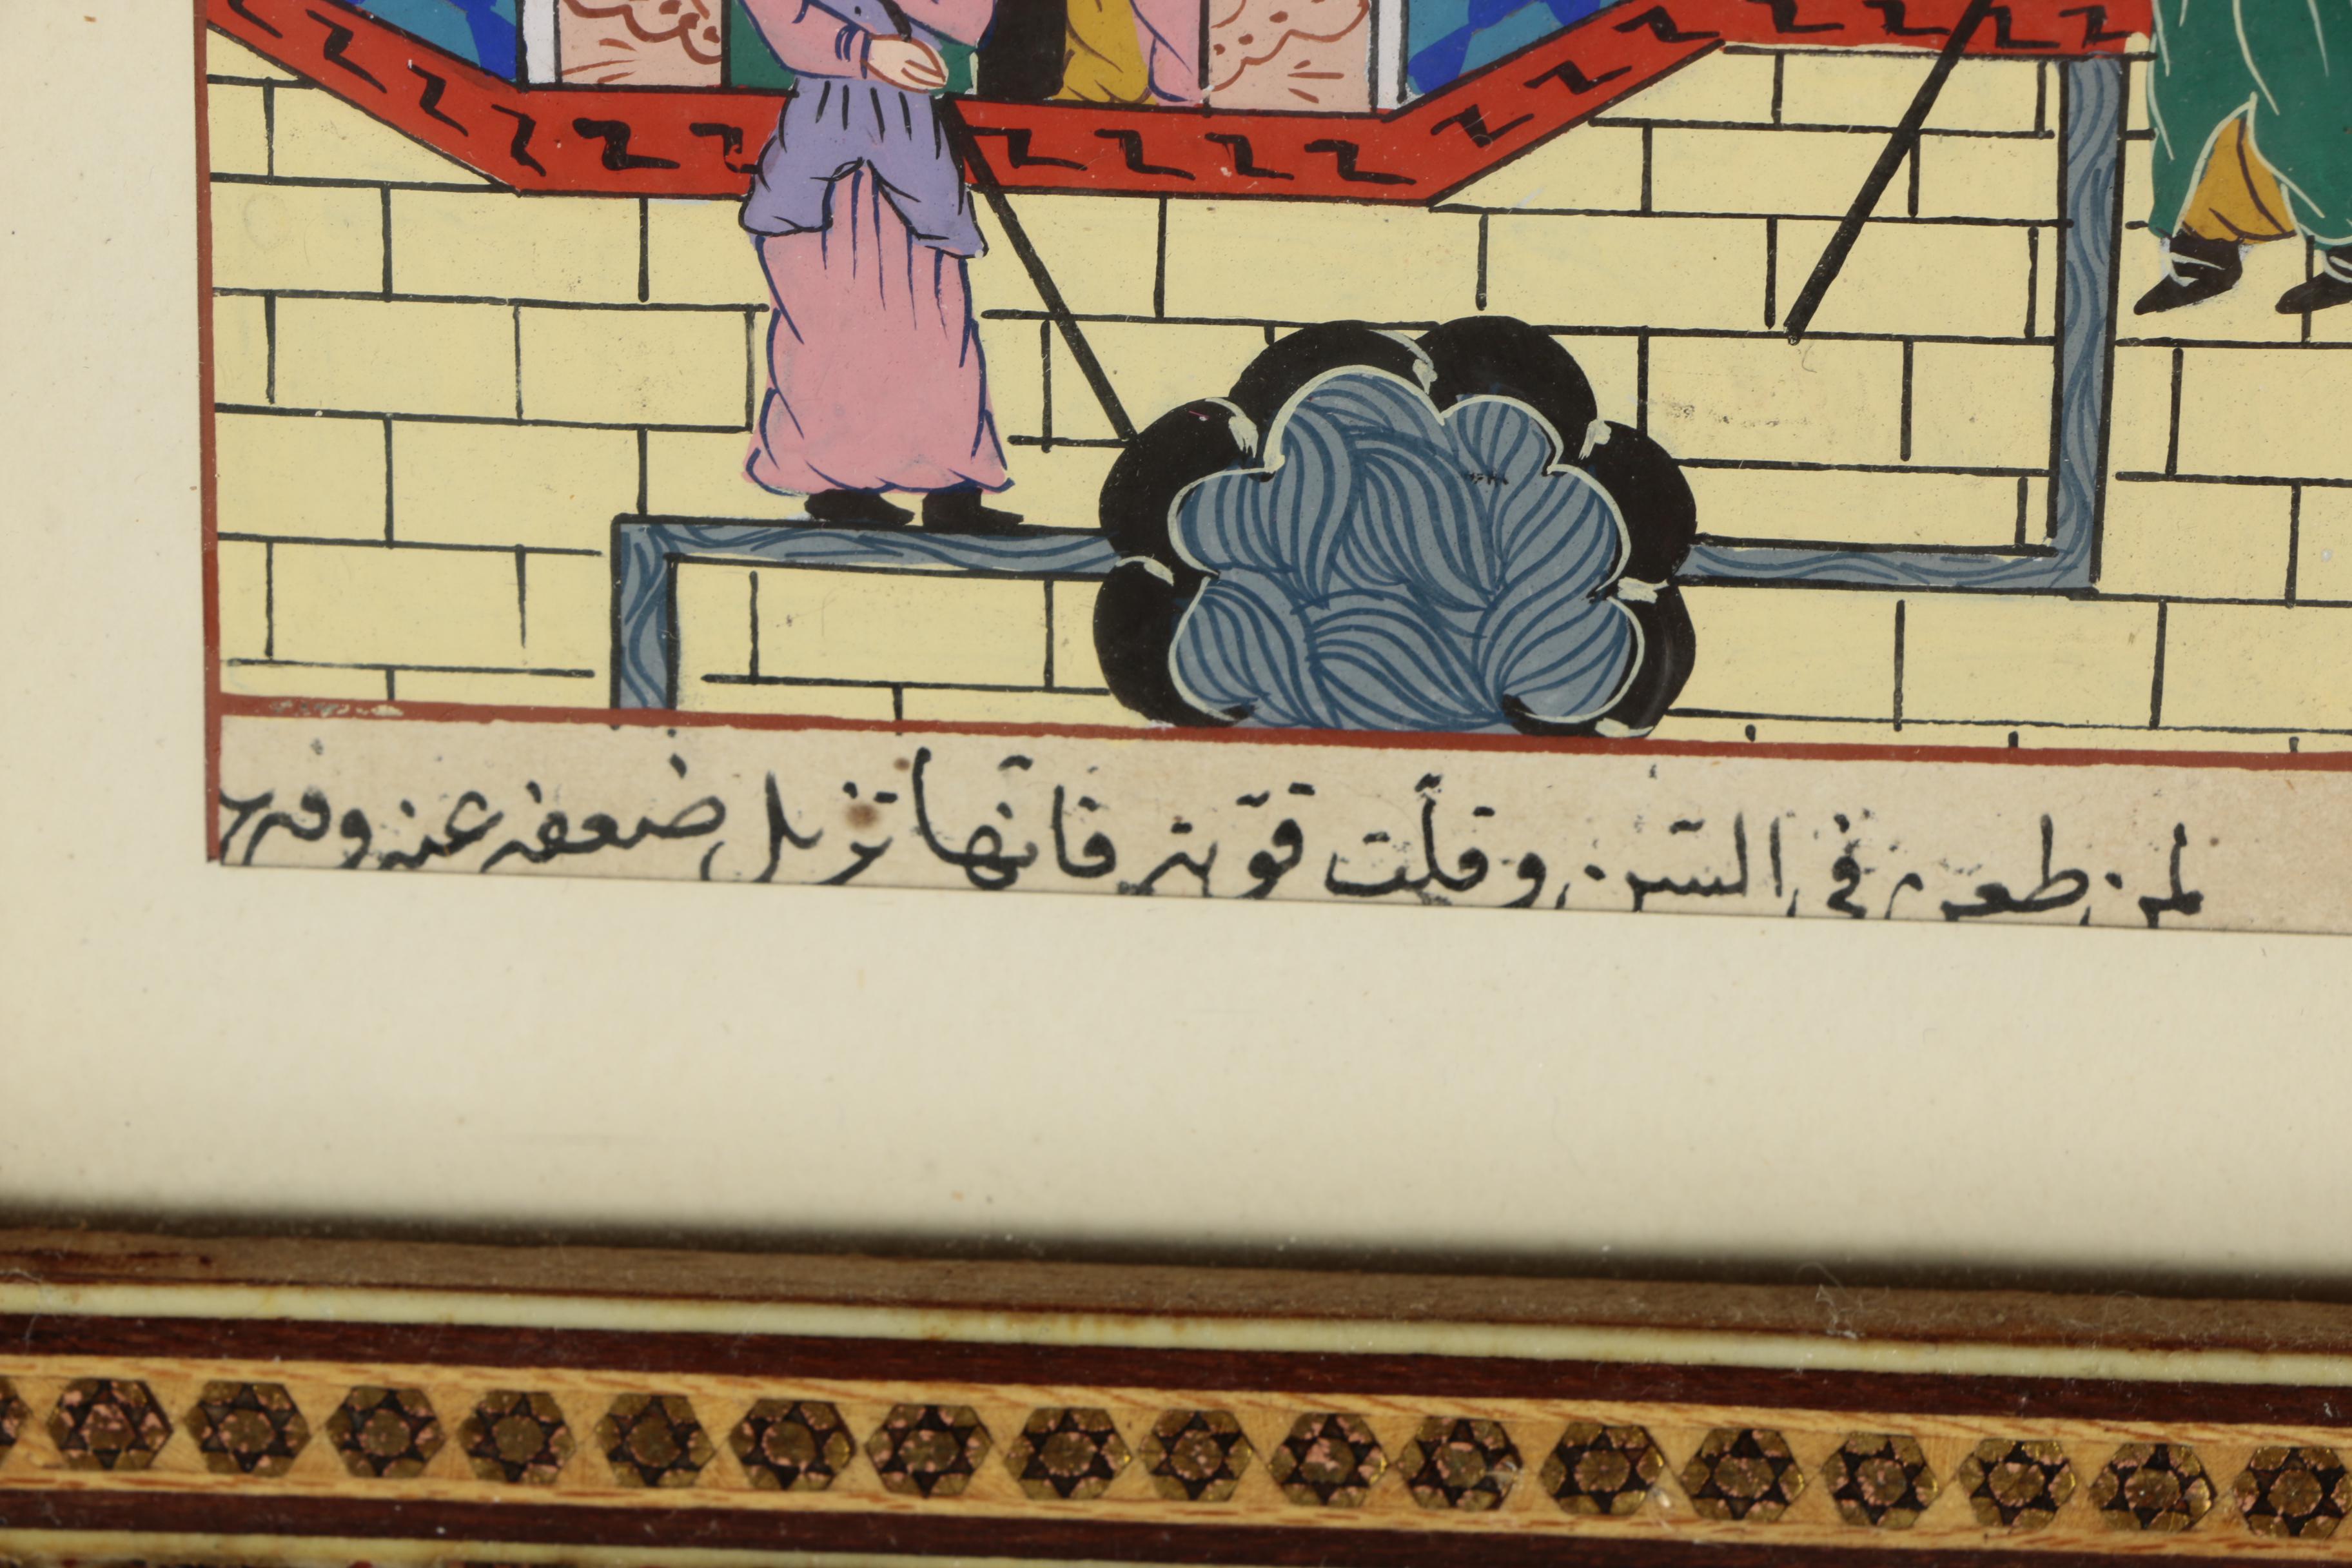 لمن طعن في السن وقلّت قوته فانّها تزيل ضعفه عنه